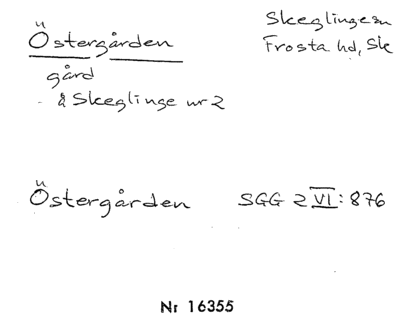 Östergården
Skeglinge sn
Frosta hd, Sk
gård
å Skeglinge nr 2
Östergården SGG 2 VI: 876
Nr 16355